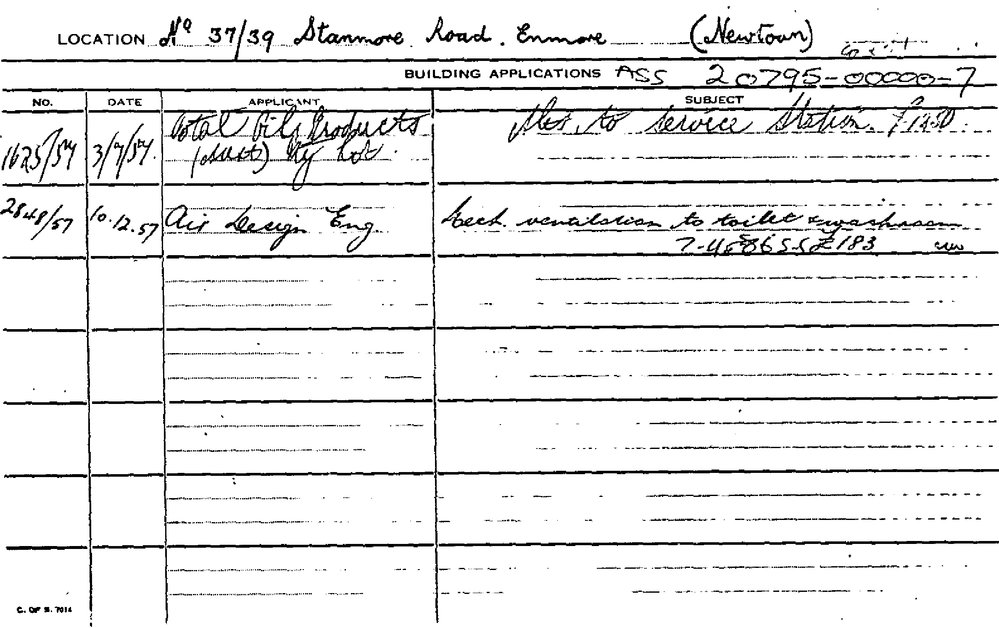 LOCATION Nº 37/39 Stanmore Road. Enmore (Newtown)
BUILDING APPLICATIONS ASS 20795-00000-7
NO. DATE APPLICANT SUBJECT
1625/57 3/7/57. Total Oil Products Alts. to Service Station. £1250
(Aust) Pty Ltd.
2848/57 10.12.57 Air Design Eng. Mech. ventilation to toilet & washroom
£183
C. OF S. 7014